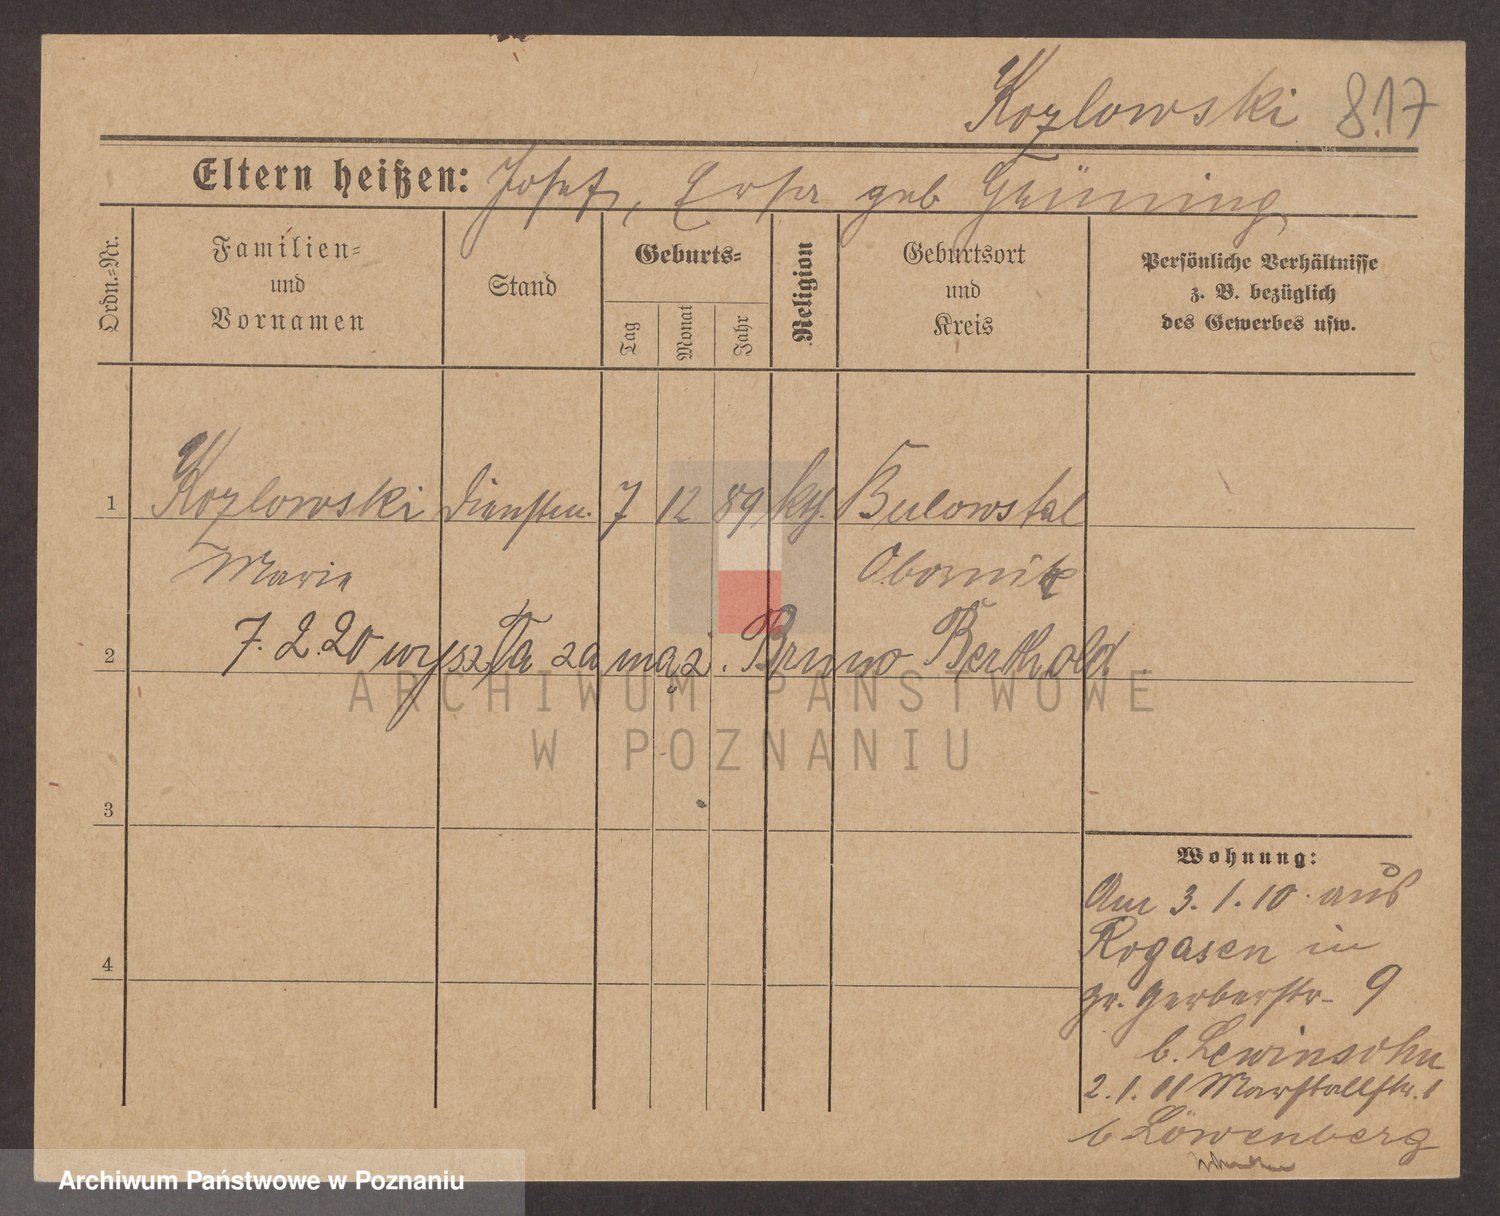 Kozlowski 817
Eltern heißen: Josef, Ersa geb Grüning
Ordn.=Nr.
Familien=
und
Vornamen
Stand
Geburts=
Tag
Monat
Jahr
Religion
Geburtsort
und
Kreis
Persönliche Verhältnisse
z. B. bezüglich
des Gewerbes usw.
1 Kozlowski Dienstm. 7 12 89 kth. Bulowstal
Marie Obornik
2 7.2.20 wyszła za mąż. Bruno Berthold
3
4
Wohnung:
Am 3.1.10 aus
Rogasen in
gr. Gerberstr. 9
b. Lewinsohn
2.1.11 Marstallstr. 1
b Löwenberg
ARCHIWUM PAŃSTWOWE
W POZNANIU
Archiwum Państwowe w Poznaniu